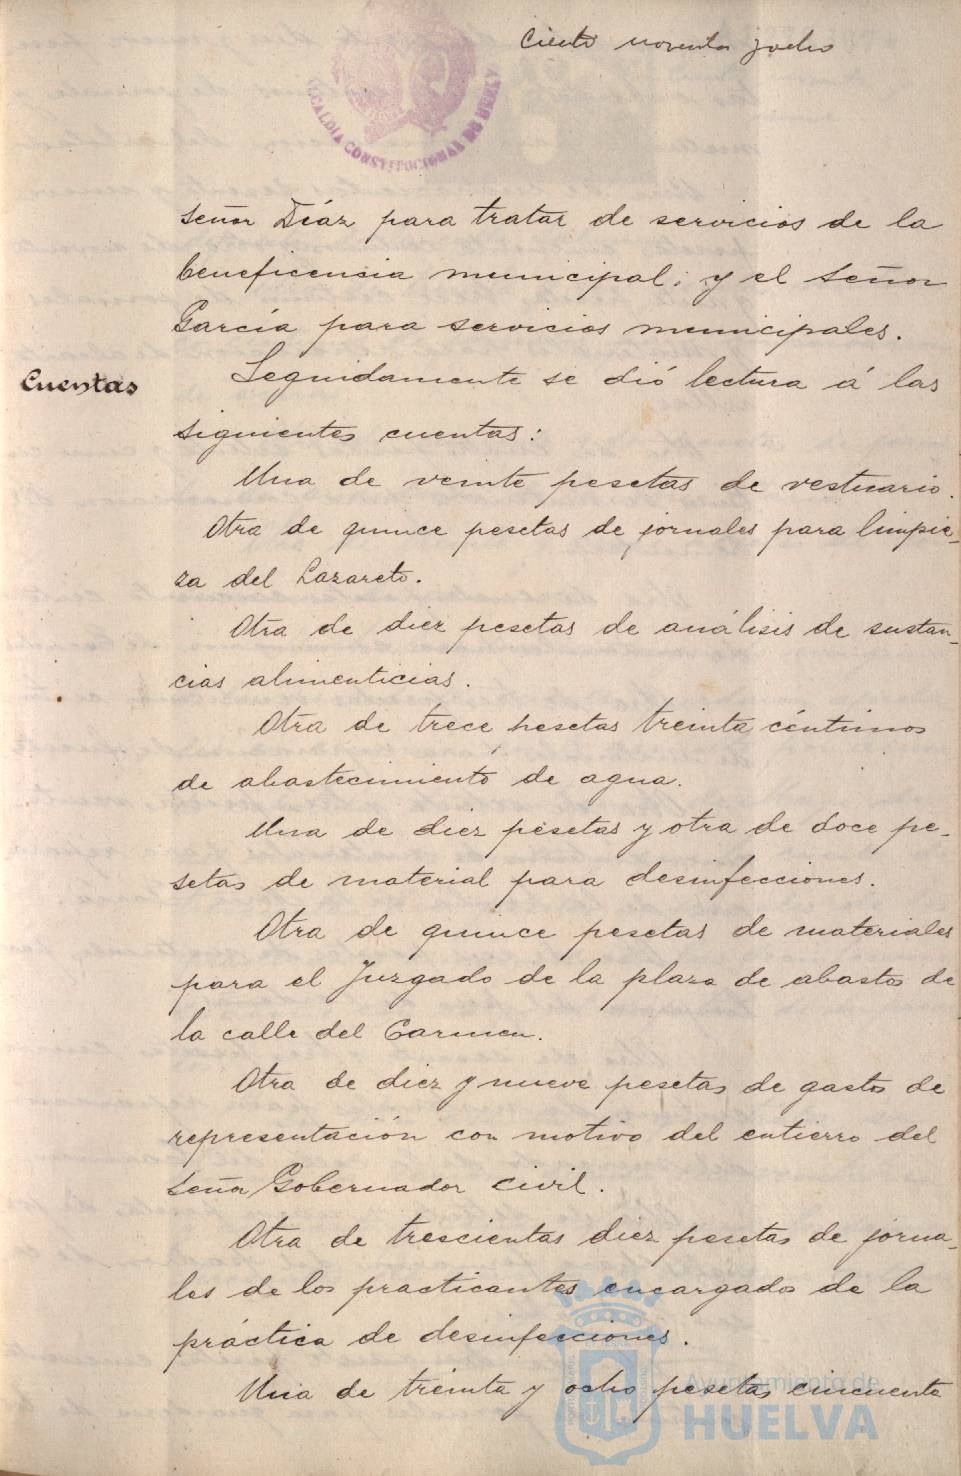 Ciento noventa y ocho
ALCALDIA CONSTITUCIONAL DE HUELVA
señor Díaz para tratar de servicios de la
beneficencia municipal; y el señor
García para servicios municipales.
Cuentas
Seguidamente se dió lectura á las
siguientes cuentas:
Una de veinte pesetas de vestuario.
Otra de quince pesetas de jornales para limpie-
za del Lazareto.
Otra de diez pesetas de análisis de sustan-
cias alimenticias.
Otra de trece pesetas treinta céntimos
de abastecimiento de agua.
Una de diez pesetas y otra de doce pe-
setas de material para desinfecciones.
Otra de quince pesetas de materiales
para el Juzgado de la plaza de abastos de
la calle del Carmen.
Otra de diez y nueve pesetas de gastos de
representación con motivo del entierro del
señor Gobernador civil.
Otra de trescientas diez pesetas de jorna-
les de los practicantes encargados de la
práctica de desinfecciones.
Una de treinta y ocho pesetas cincuenta
Ayuntamiento de
HUELVA